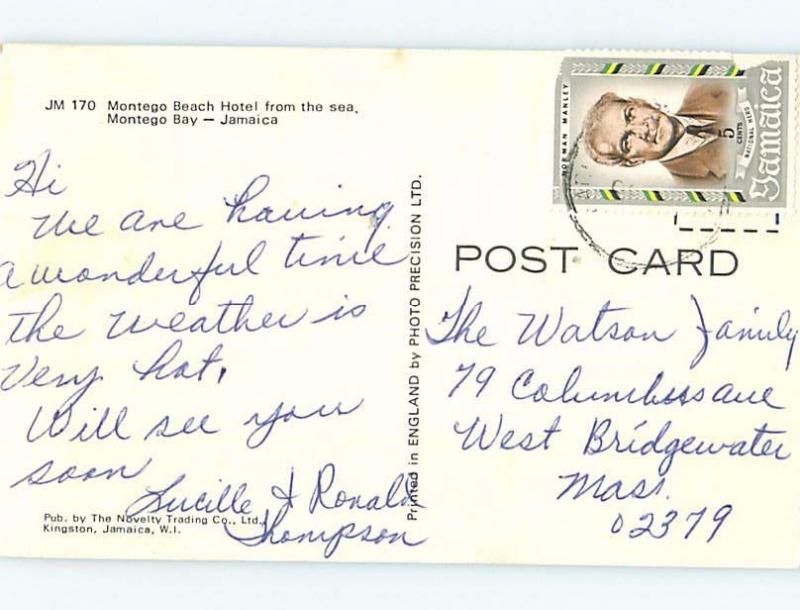 JM 170 Montego Beach Hotel from the sea,
Montego Bay — Jamaica
Hi
We are having
a wonderful time
the weather is
very hot.
Will see you
soon
Lucille & Ronald
Thompson
Pub. by The Novelty Trading Co., Ltd.,
Kingston, Jamaica, W.I.
Printed in ENGLAND by PHOTO PRECISION LTD.
NORMAN MANLEY
5
CENTS
NATIONAL HERO
Jamaica
POST CARD
The Watson Family
79 Columbus ave
West Bridgewater
Mass.
02379